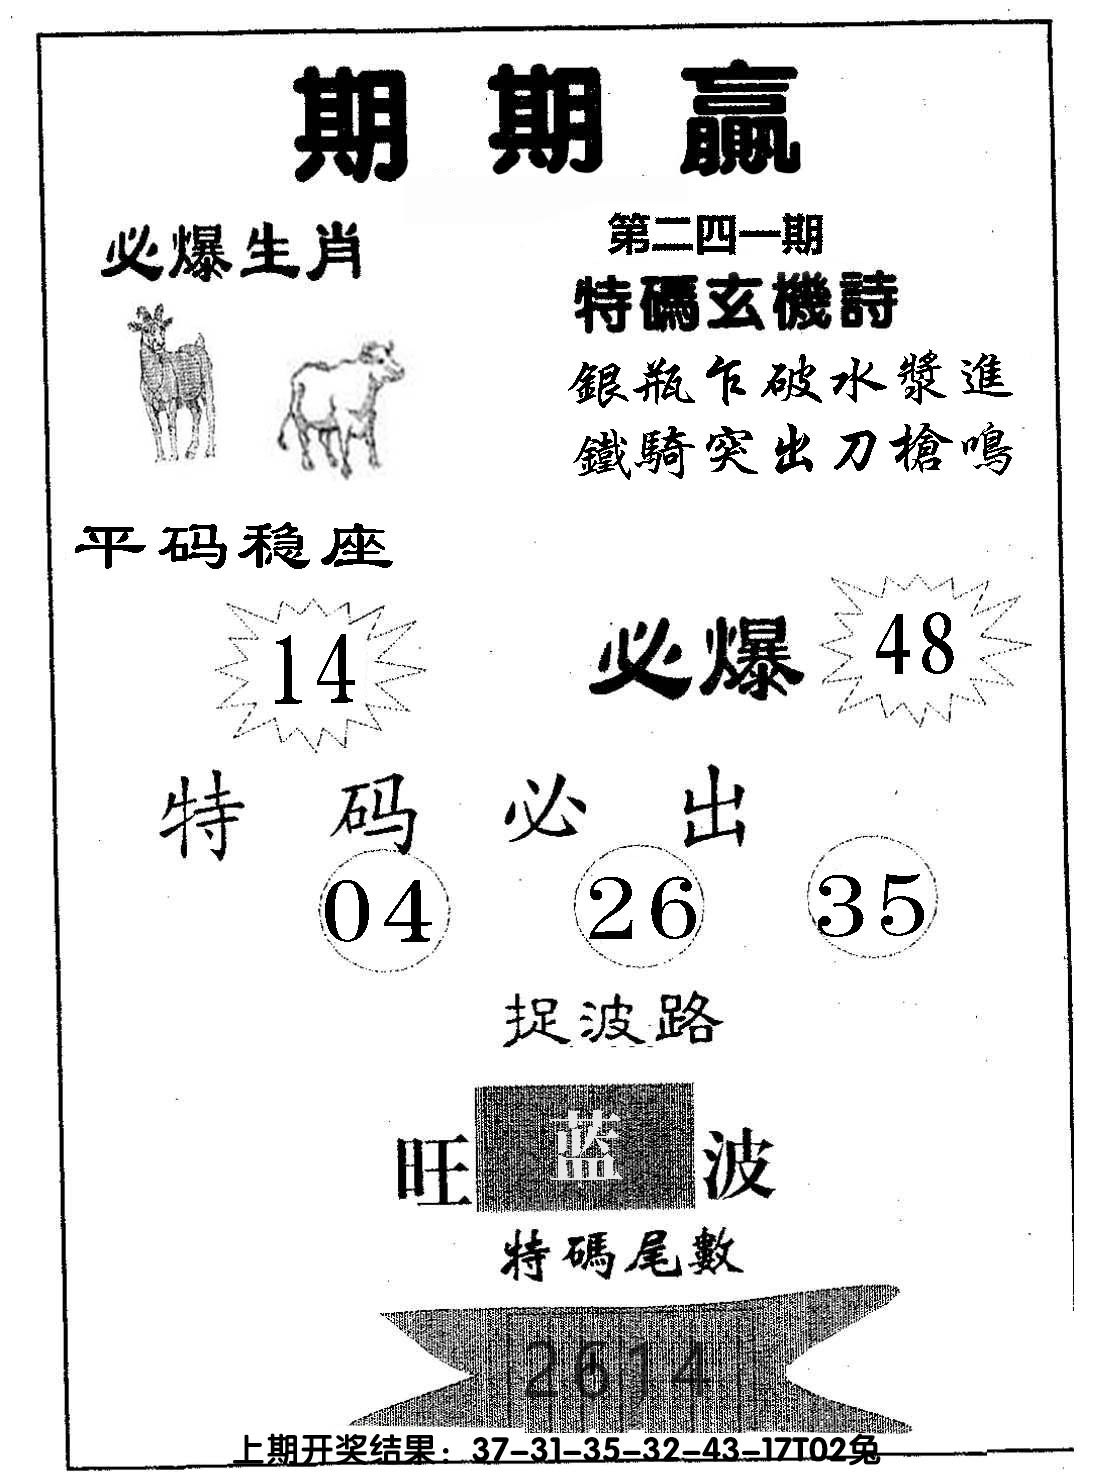 期期贏
必爆生肖
第二四一期
特碼玄機詩
銀瓶乍破水漿進
鐵騎突出刀槍鳴
平码稳座
14
必爆 48
特码必出
04 26 35
捉波路
旺 蓝 波
特碼尾數
2614
上期开奖结果：37-31-35-32-43-17T02兔